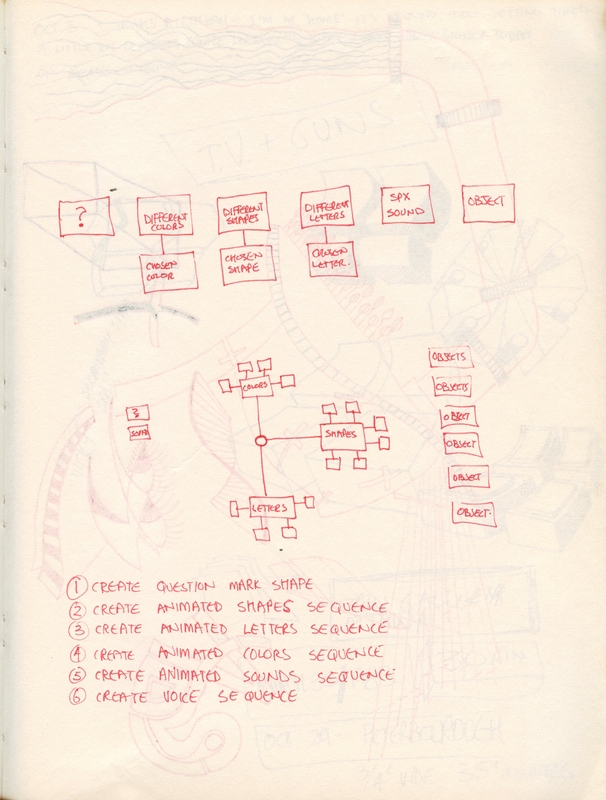 ?
DIFFERENT
COLORS
DIFFERENT
SHAPES
DIFFERENT
LETTERS
SPX
SOUND
OBJECT
CHOSEN
COLOR
CHOSEN
SHAPE
CHOSEN
LETTER.
COLORS
SHAPES
LETTERS
OBJECTS
OBJECTS
OBJECT
OBJECT
OBJECT
OBJECT.
① CREATE QUESTION MARK SHAPE
② CREATE ANIMATED SHAPES SEQUENCE
③ CREATE ANIMATED LETTERS SEQUENCE
④ CREATE ANIMATED COLORS SEQUENCE
⑤ CREATE ANIMATED SOUNDS SEQUENCE
⑥ CREATE VOICE SEQUENCE